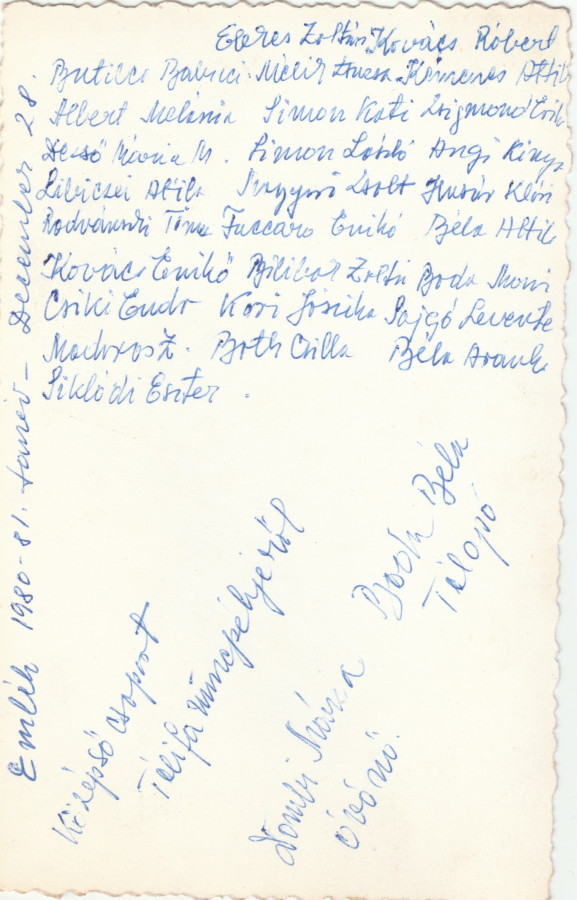 Egeres Zoltán Kovács Róbert
Butilca Babuci Kemenes Attila
Albert Melánia Simon Kati Zsigmond
Dezső Mária M. Simon László Angi Kinga
Attila Zsolt Huszár Klári
Tímea Fuccaro Enikő Béla Attila
Kovács Enikő Bilibok Zoltán Boda Moni
Csiki Endre Kósi Jósika Sajgó Levente
Both Csilla Béla Aranka
Siklódi Eszter.
Emlék 1980-81. tanév - December 28.
Középső csoport
Télifa ünnepélyéről
Dombi Mária
óvónő.
Bodó Béla
Télapó